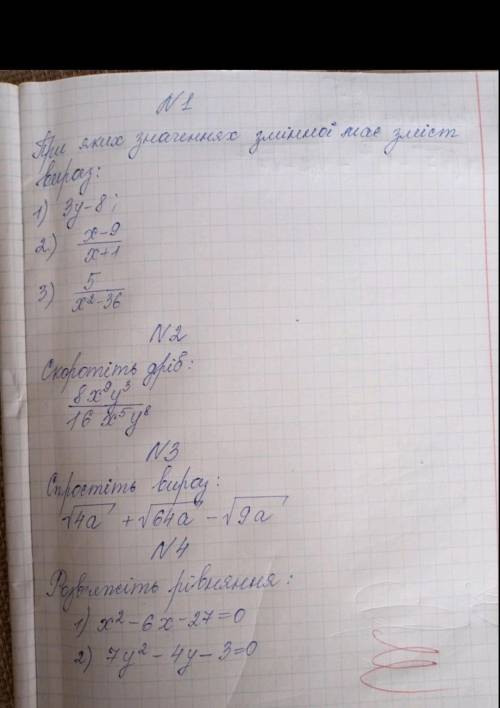 N1
При яких значеннях змінної має зміст
вираз:
1) 3y-8;
2.) x-9/x+1
3) 5/x²-36
N2
Скоротіть дріб:
8x⁹y³/16x⁵y⁸
N3
Спростіть вираз:
√4a + √64a - √9a
N4
Розв'яжіть рівняння:
1) x²-6x-27=0
2) 7y²-4y-3=0